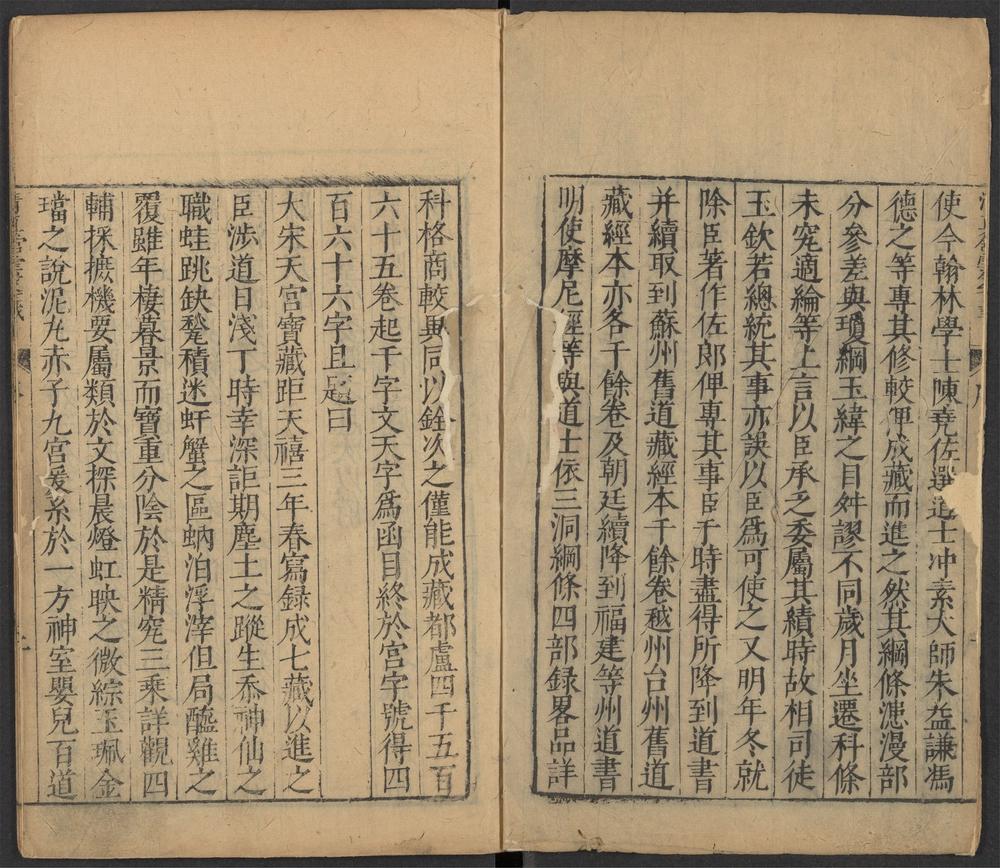 使今翰林學士陳堯佐選道士冲素大師朱益謙馮
德之等專其修較俾成藏而進之然其綱條漶漫部
分參差與瓊綱玉緯之目舛謬不同歲月坐遷科條
未究適綸等上言以臣承之委屬其績時故相司徒
玉欽若總統其事亦誤以臣爲可使之又明年冬就
除臣著作佐郎俾專其事臣于時盡得所降到道書
并續取到蘇州舊道藏經本千餘卷越州台州舊道
藏經本亦各千餘卷及朝廷續降到福建等州道書
明使摩尼經等與道士依三洞綱條四部録畧品詳
科格商較異同以銓次之僅能成藏都盧四千五百
六十五卷起千字文天字爲函目終於宮字號得四
百六十六字且題曰
大宋天宮寶藏距天禧三年春寫録成七藏以進之
臣涉道日淺丁時幸深詎期塵土之蹤生忝神仙之
職蛙跳缺甃積迷虷蟹之區蚋泊浮滓但局醯雞之
覆雖年棲暮景而寶重分陰於是精究三乘詳觀四
輔採摭機要屬類於文探晨燈虹映之微綜玉珮金
璫之說泥丸赤子九宮爰系於一方神室嬰兒百道